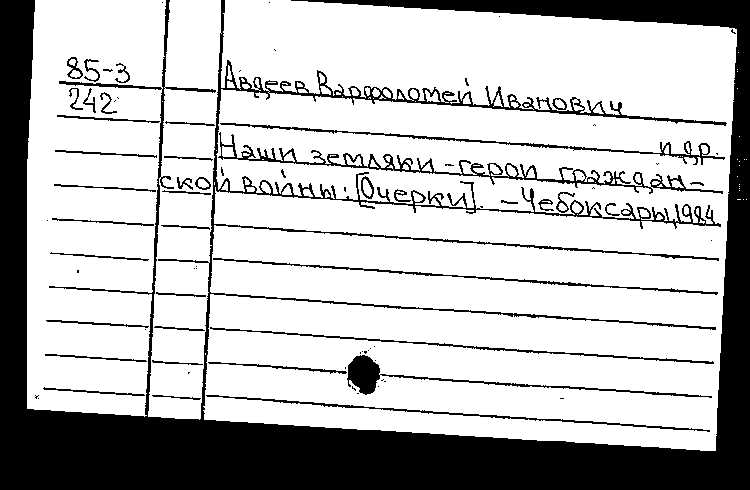 85-3 Авдеев, Варфоломей Иванович
242
и др.
Наши земляки - герои граждан-
ской войны: [Очерки]. - Чебоксары, 1984.